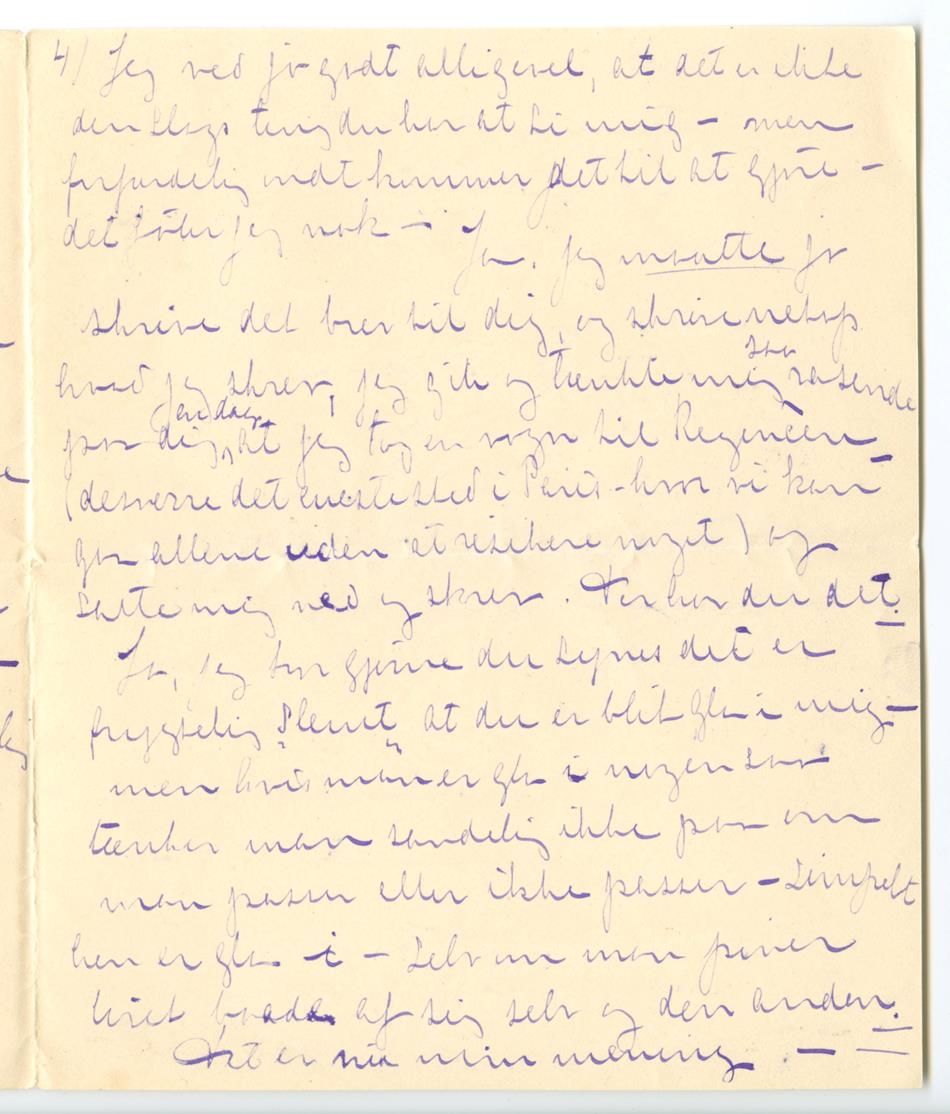 4) Jeg ved jo godt alligevel, at det er ikke
den slags ting du har at si mig – men
forfærdelig ondt kommer det til at gjøre –
det føler jeg nok – Ja, jeg maatte jo
skrive det brev til dig, og skrive netop
hvad jeg skrev, jeg gik og tænkte mig saa rasende
paa dig, en dag, at jeg tog en vogn til Regencen
(desværre det eneste sted i Paris – hvor vi kan
gaa allene uden at reskere noget) og
satte mig ned og skrev. Der har du det.
Ja, jeg tror gjerne du synes det er
frygtelig "slemt" at du er blit gla i mig –
men hvis man er gla i nogen saa
tænker man sandelig ikke paa om
man passer eller ikke passer – simpelt
hen er gla i – selv om man piner
livet baade af sig selv og den anden.
Det er nu min mening. –